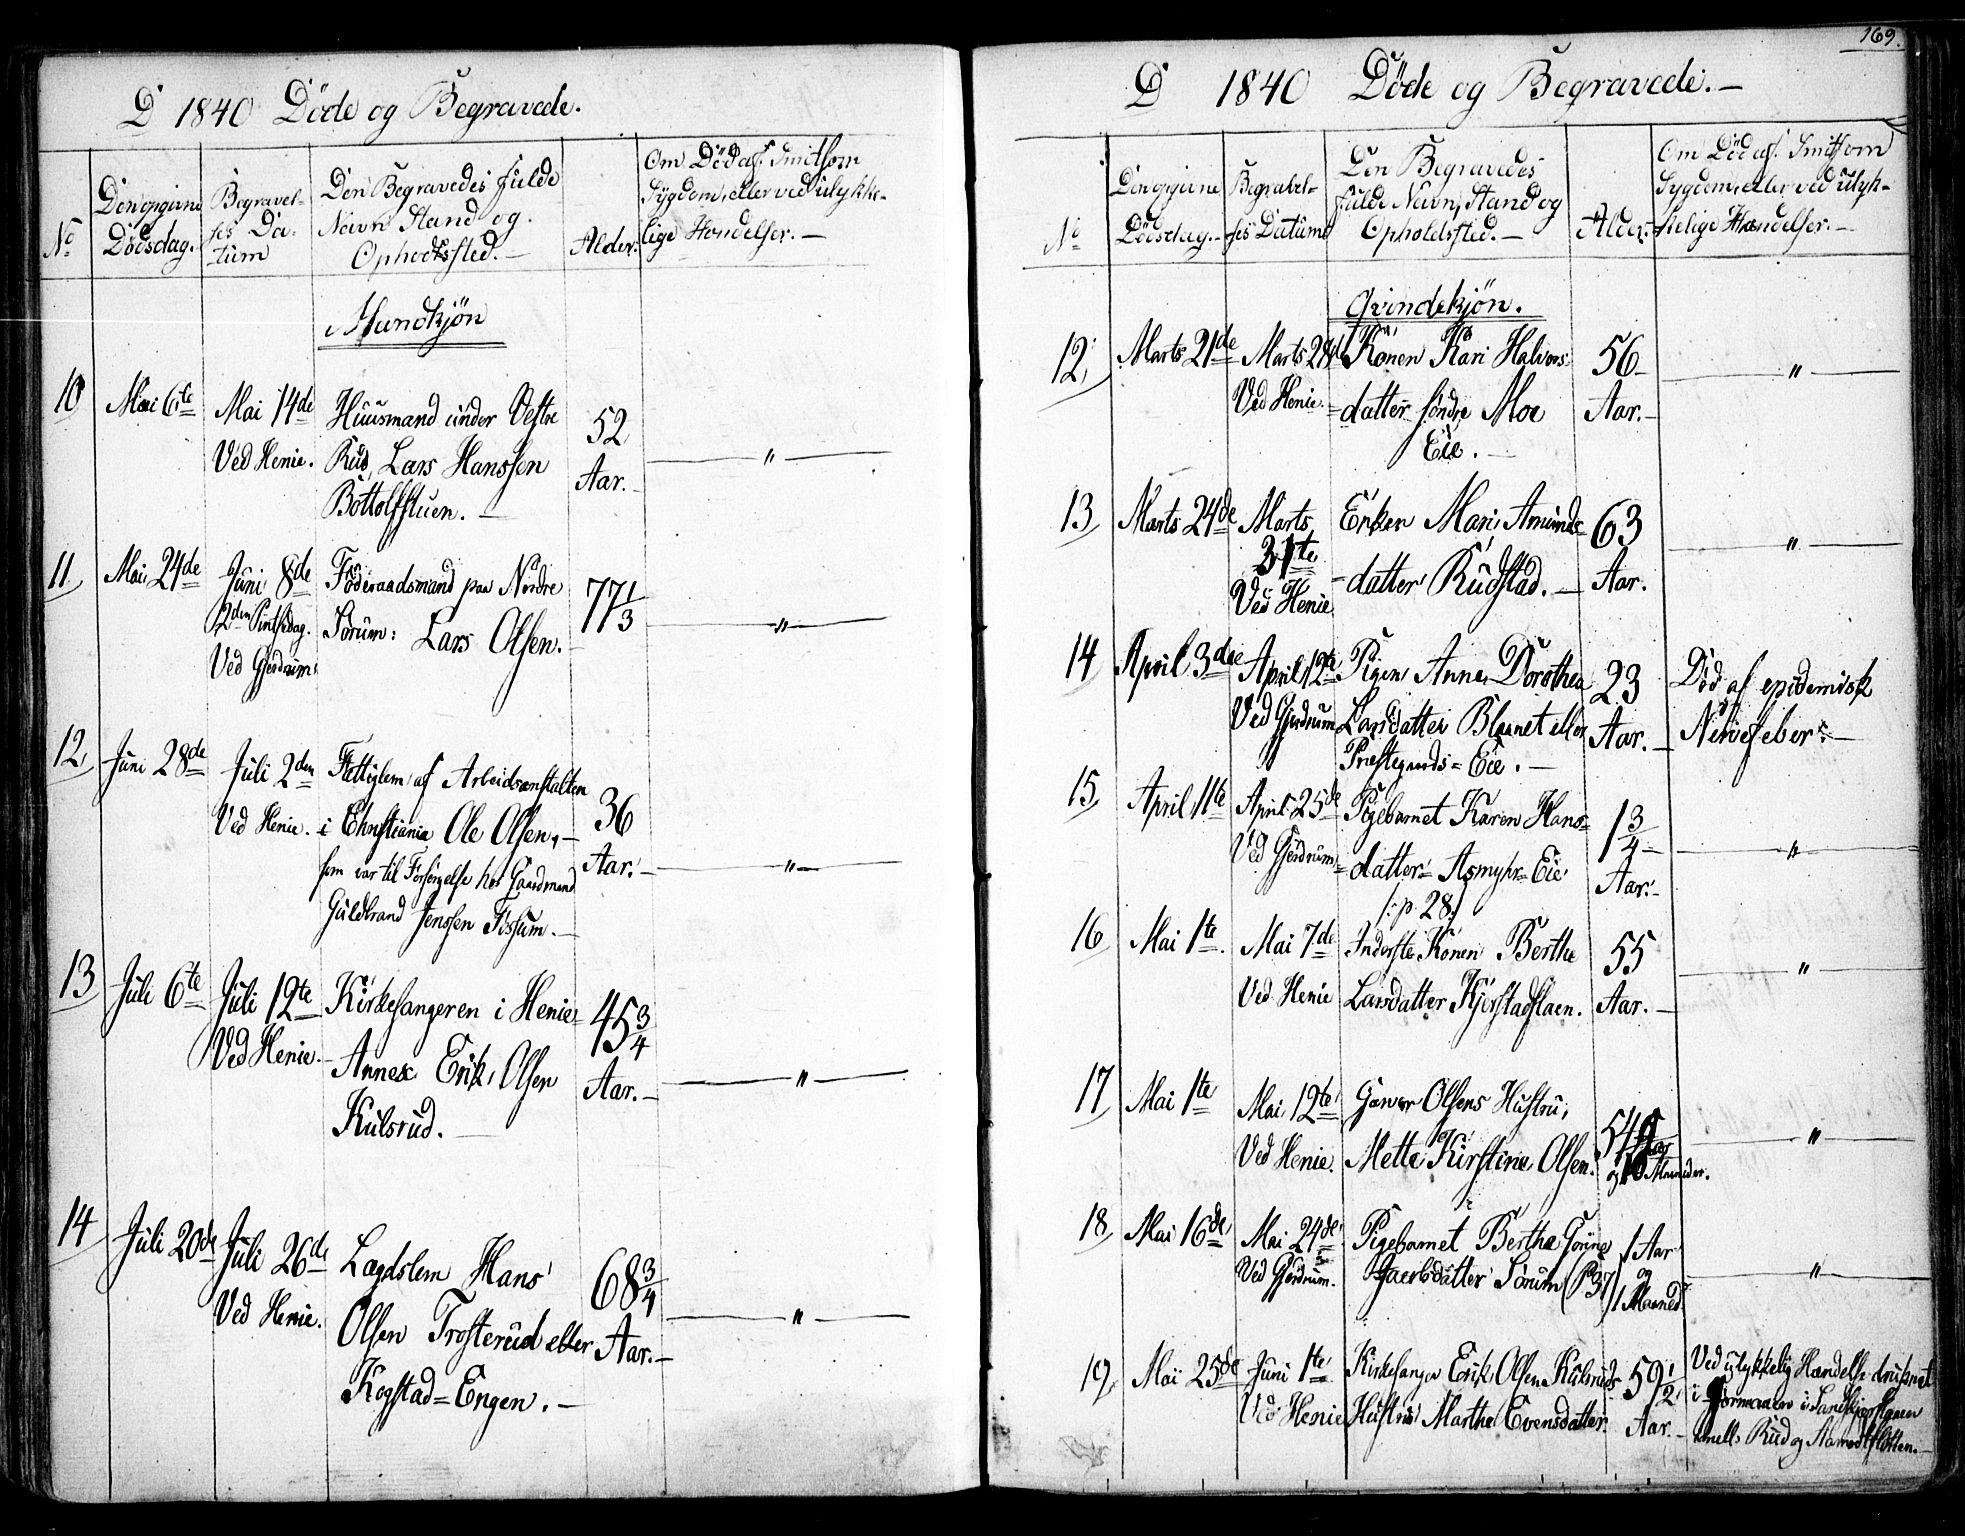 D 1840 Döde og Begravede.
No
Den opgivne Dödsdag.
Begravelses Datum
Den Begravedes fulde Navn Stand og Opholdssted. —
Alder.
Om Död af Smitsom Sygdom, eller ved ulykkelige Hændelser. —
Mandkjön
10
Mai 6te
Mai 14de
Ved Henie.
Huusmand under Vestre
Rud, Lars Hanssen
Bottolfstuen. —
52
Aar.
— " —
11
Mai 24de
Juni 8de
2den Pintsedag.
Ved Gjerdrum.
Föderaadsmand paa Nordre
Sörum: Lars Olsen.
77 1/3
— " —
12
Juni 28de
Juli 2den
Ved Henie.
Fattiglem af Arbeidsanstalten
i Christiania Ole Olsen, —
som var til Forsörgelse hos Gaardmand
Guldbrand Jenssen Fossum. —
36
Aar. —
— " —
13
Juli 6te
Juli 12te
Ved Henie. —
Kirkesangeren i Henie
Annex Erik Olsen
Kulsrud. —
45 3/4
Aar. —
— " —
14
Juli 20de
Juli 26de
Ved Henie.
Lægdslem Hans
Olsen Trosterud eller
Kogstad=Engen. —
68 3/4
Aar. —
— " —
169.
D 1840 Döde og Begravede. —
No
Den opgivne Dödsdag. —
Begravelses Datum
Den Begravedes fulde Navn, Stand og Opholdssted. —
Alder.
Om Död af Smitsom Sygdom, eller ved ulykkelige Hændelser. —
Qvindekjön.
12
Marts 21de
Marts 28de
Ved Henie.
Konen Kari Halvors=
=datter söndre Moe
Eie. —
56
Aar. —
— " —
13
Marts 24de
Marts
31te
Ved Henie
Enken Mari Amunds=
=datter Rudstad. —
63
Aar.
— " —
14
April 3die
April 12te
Ved Gjerdrum
Pigen Anne Dorothea
Larsdatter eller
Præstegaards=Eie. —
23
Aar. —
Död af epidemisk
Nervefeber. —
15
April 11te
April 25de
Ved Gjerdrum
Pigebarnet Karen Hans=
=datter= Asmyhr=Eie
/: p. 28 :/
1 3/4
Aar. —
— " —
16
Mai 1te
Mai 7de
Ved Henie
Inderste Konen Berthe
Larsdatter Kjerstadflaen.
55
Aar. —
— " —
17
Mai 1te
Mai 12te
Ved Henie.
Garver Olsens Hustru,
Mette Kirstine Olsen.
54 Aar
og 10 Maaneder.
— " —
18
Mai 16de
Mai 24de
Ved Gjerdrum.
Pigebarnet Berthe Gorine
Jacobsdatter Sörum (P 37)
1 Aar
og
1 Maaned.
— " —
19
Mai 25de
Juni 1te
Ved Henie
Kirkesanger Erik Olsen Kulsruds
Hustru Marthe Evensdatter.
59 1/2
Aar. —
Ved ulykkelig Hændelse druknet
i
mell. Rud og